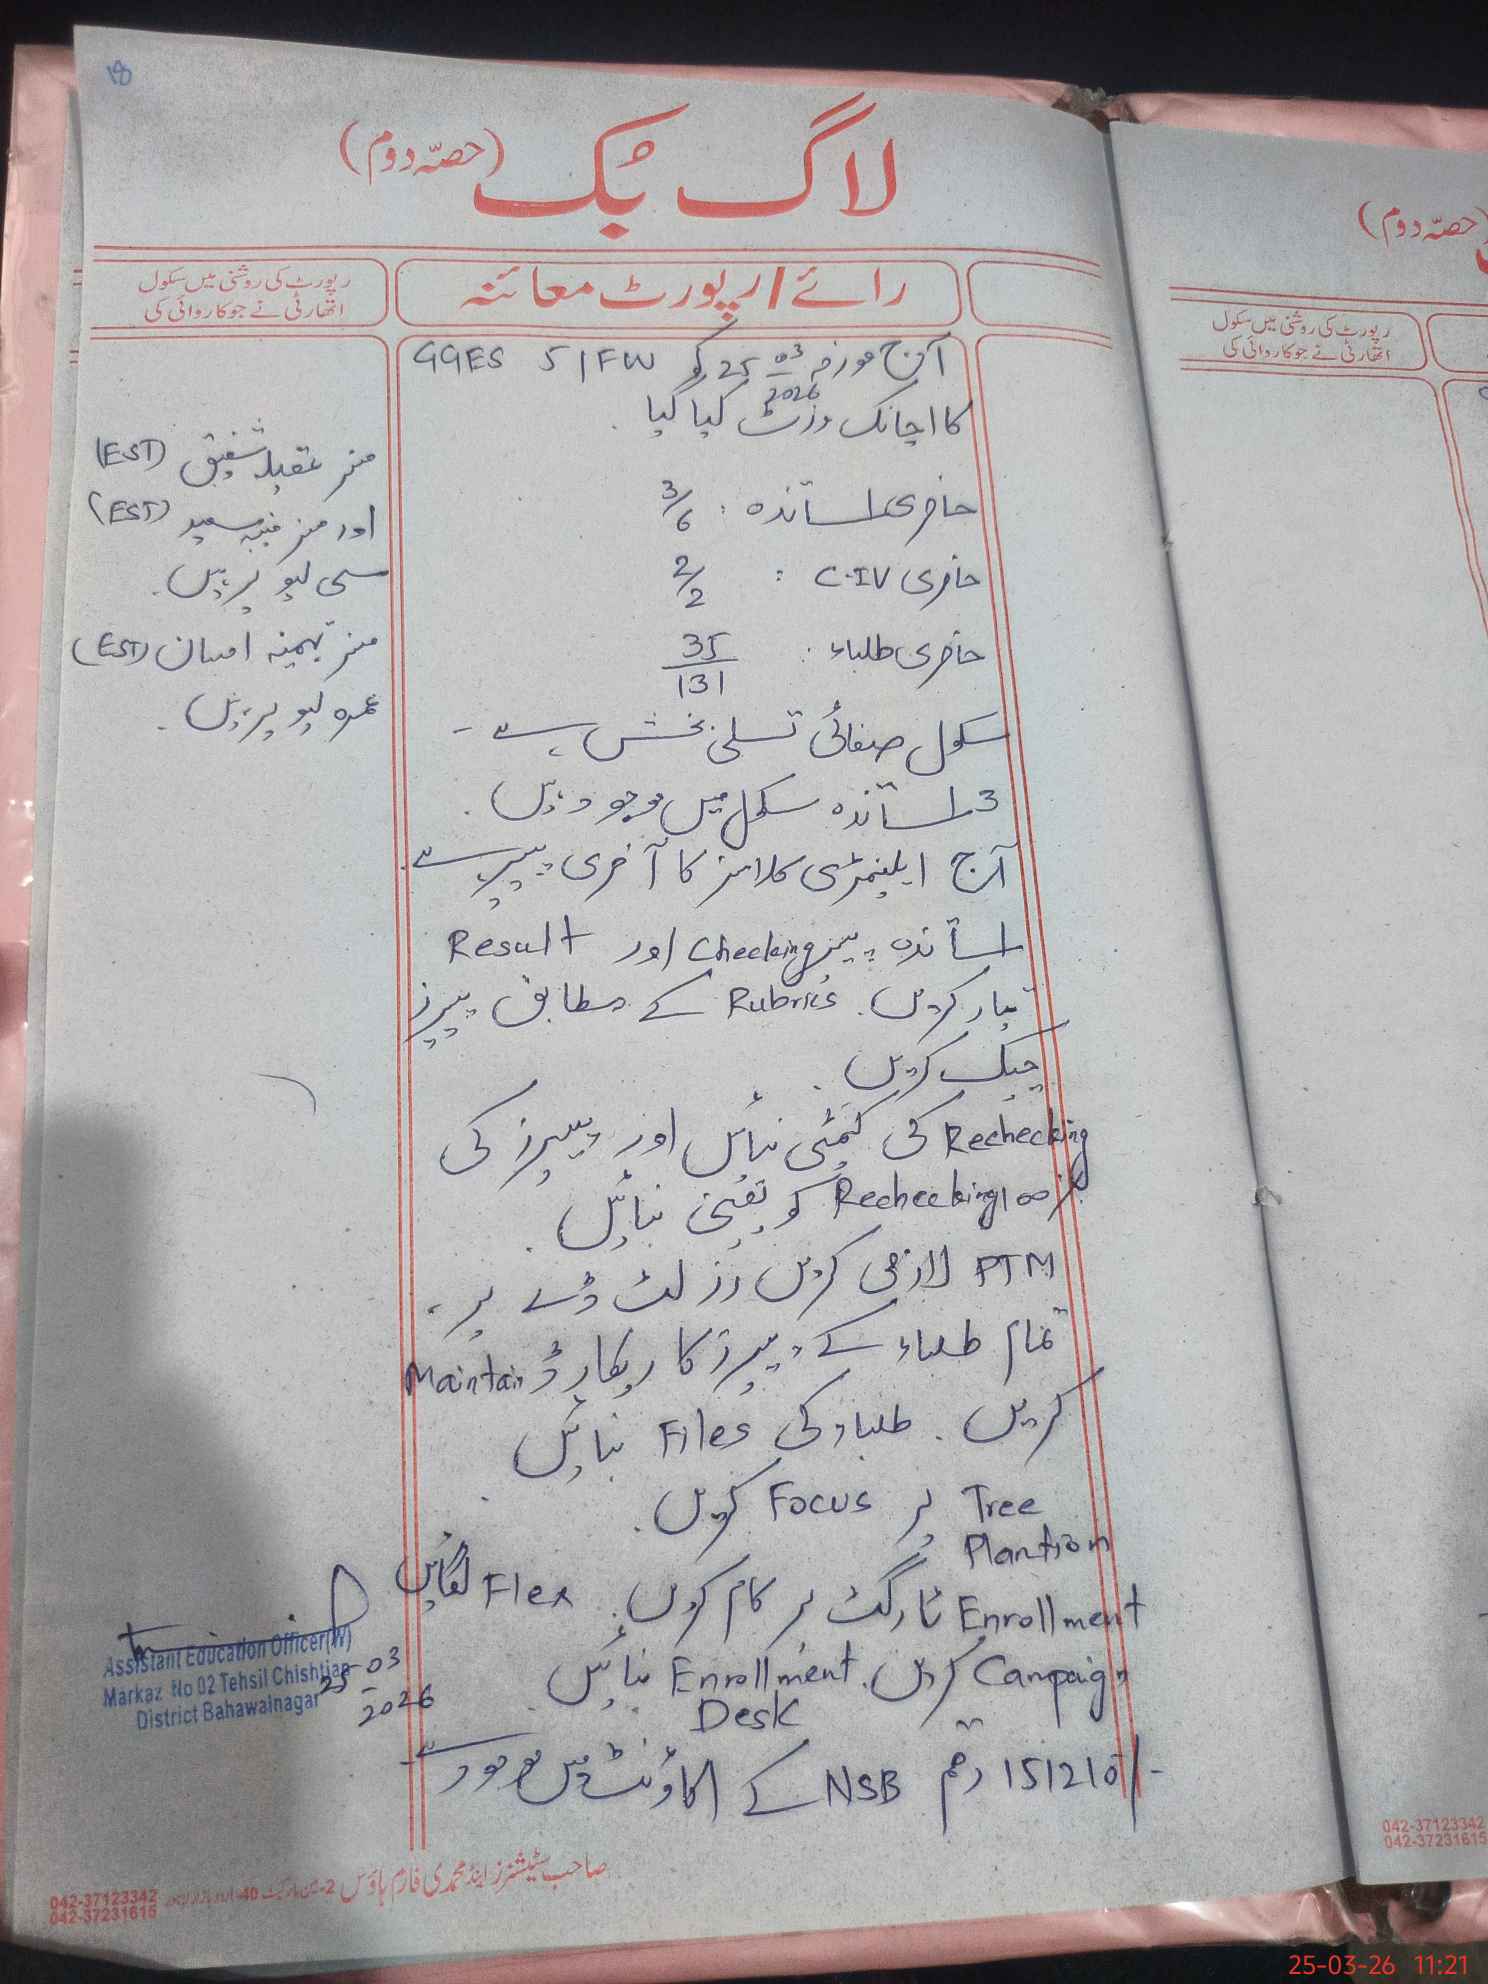 18
لاگ بک (حصہ دوم)
رائے / رپورٹ معائنہ
رپورٹ کی روشنی میں سکول
اتھارٹی نے جو کاروائی کی
آج مورخہ 25-03-2026 کو GGES 51FW
کا اچانک وزٹ کیا گیا.
حاضری اساتذہ : 3/6
حاضری C-IV : 2/2
حاضری طلباء : 35/131
سکول صفائی تسلی بخش ہے -
3 اساتذہ سکول میں موجود ہیں.
آج ایلیمنٹری کلاسز کا آخری پیپر ہے.
اساتذہ پیپر Checking اور Result
تیار کریں. Rubrics کے مطابق پیپرز
چیک کریں.
Rechecking کی کمیٹی بنائیں اور پیپرز کی
100% Rechecking کو یقینی بنائیں.
PTM لازمی کریں رزلٹ ڈے پر.
تمام طلباء کے پیپرز کا ریکارڈ Maintain
کریں. طلباء کی Files بنائیں.
Tree Plantion پر Focus کریں.
Enrollment ٹارگٹ پر کام کریں. Flex لگائیں
Campaign کریں. Enrollment Desk بنائیں.
151210/- رقم NSB کے اکاؤنٹ میں موجود ہے
مسز شفیق (EST)
اور مسز سعید (EST)
لیو پر ہیں.
مسز تہمینہ (EST)
عمرہ لیو پر ہیں.
Assistant Education Officer(W)
Markaz No 02 Tehsil Chishtian
District Bahawalnagar
25-03-2026
صاحب سٹیشنرز اینڈ محمدی فارم ہاؤس 2- 40-اردو بازار لاہور
042-37123342
042-37231615
(حصہ دوم)
رپورٹ کی روشنی میں سکول
اتھارٹی نے جو کاروائی کی
042-37123342
042-37231615
25-03-26 11:21